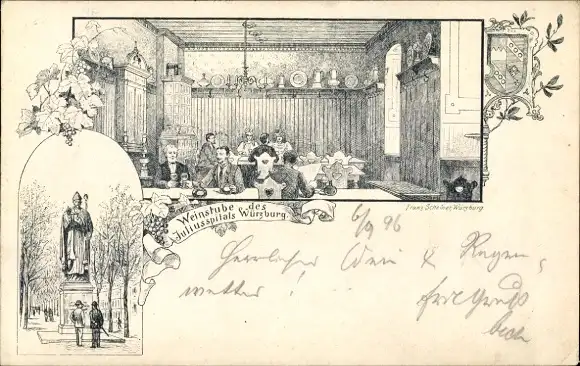 Weinstube des
Juliusspitals Würzburg.
Franz Scheiner Würzburg
6/9 96
Herrlicher Wein & Regen-
wetter!
Gruß